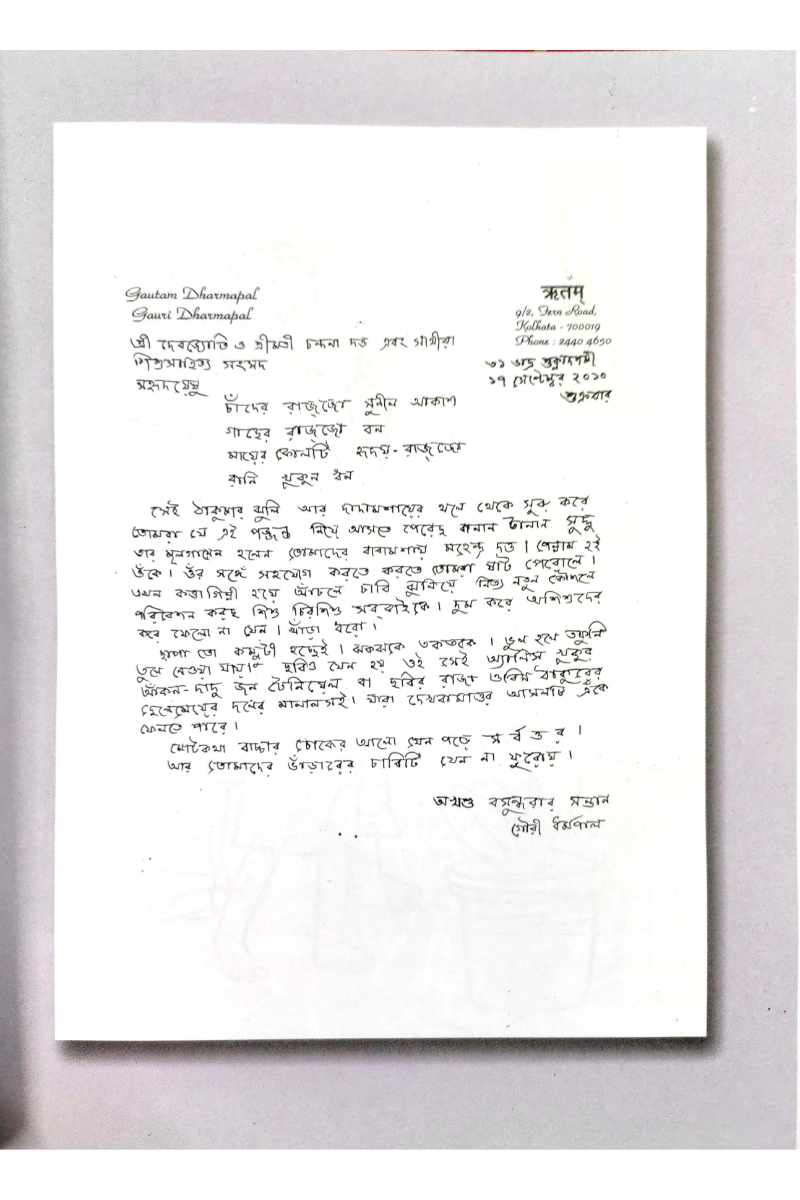 Gautam Dharmapal
Gauri Dharmapal
ऋतम्
9/2, Fern Road,
Kolkata - 700019
Phone : 2440 4650
শ্রী দেবজ্যোতি ও শ্রীমতী চন্দনা দত্ত এবং সাথীরা
শিশুসাহিত্য সংসদ
সহৃদয়েষু
৩১ ভাদ্র শুক্লাদশমী
১৭ সেপ্টেম্বর ২০১০
শুক্রবার
চাঁদের রাজ্জো সুনীল আকাশ
গাছের রাজ্জো বন
মায়ের কোলটি হৃদয়-রাজ্জো
রানি খুকুন ধন
সেই ঠাকুমার ঝুলি আর দাদামশায়ের থলে থেকে সুরু করে
তোমরা যে এই পজ্জন্ত নিয়ে আসতে পেরেছ বানান টানান সুদ্ধু
তার মূলগায়েন হলেন তোমাদের বাবামশায় মহেন্দ্র দত্ত। পেন্নাম হই
ওঁকে। ওঁর সঙ্গে সহযোগ করতে করতে তোমরা ষাট পেরোলে।
এখন কত্তাগিন্নী হয়ে আঁচলে চাবি ঝুলিয়ে নিত্য নতুন কৌশলে
পরিবেশন করছ শিশু চিরশিশু সব্বাইকে। দুম করে অশিশুদের
করে ফেলো না যেন। খাঁড়া ধরো।
ছাপা তো কম্পুটা হচ্ছেই। ঝকঝকে তকতকে। ভুল হলে তক্ষুনি
তুলে নেওয়া যায়। ছবিও যেন হয় ওই সেই অ্যালিস খুকুর
আঁকন-দাদু জন টেনিয়েল বা ছবির রাজা ওবিন ঠাকুরের
ছেলেমেয়ের দলের মানানসই। যারা দেখবামাত্তর আসনটি এঁকে
ফেলতে পারে।
মোটকথা বাচ্চার চোকের আলো যেন পড়ে সর্বত্তর।
আর তোমাদের ভাঁড়ারের চাবিটি যেন না ফুরোয়।
অখণ্ড বসুন্ধরার সন্তান
গৌরী ধর্মপাল